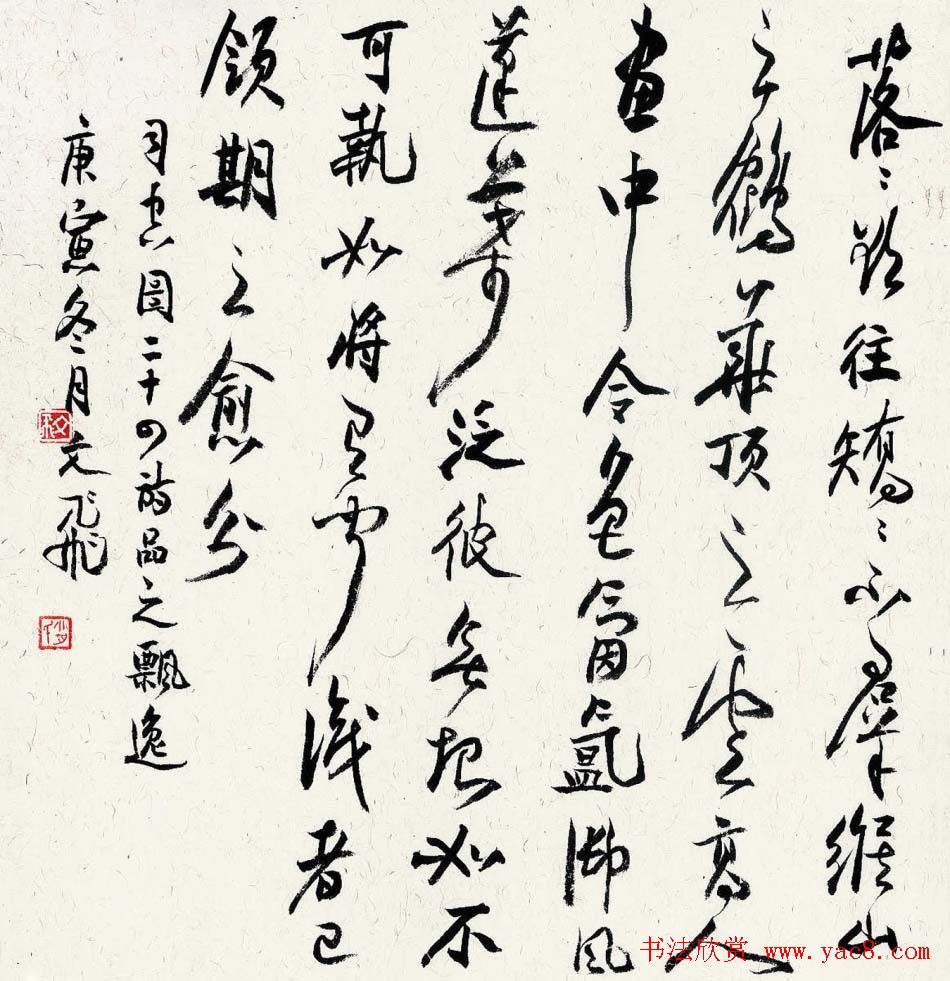 落〻欲往矯〻不羣緱山
之鶴華顶之雲高人
畫中令色氤氳御风
蓬葉泛彼無垠如不
可執如将有聞識者已
领期之愈分
司空圖二十四詩品之飄逸
庚寅冬月文飛
书法欣赏 www.yac8.com